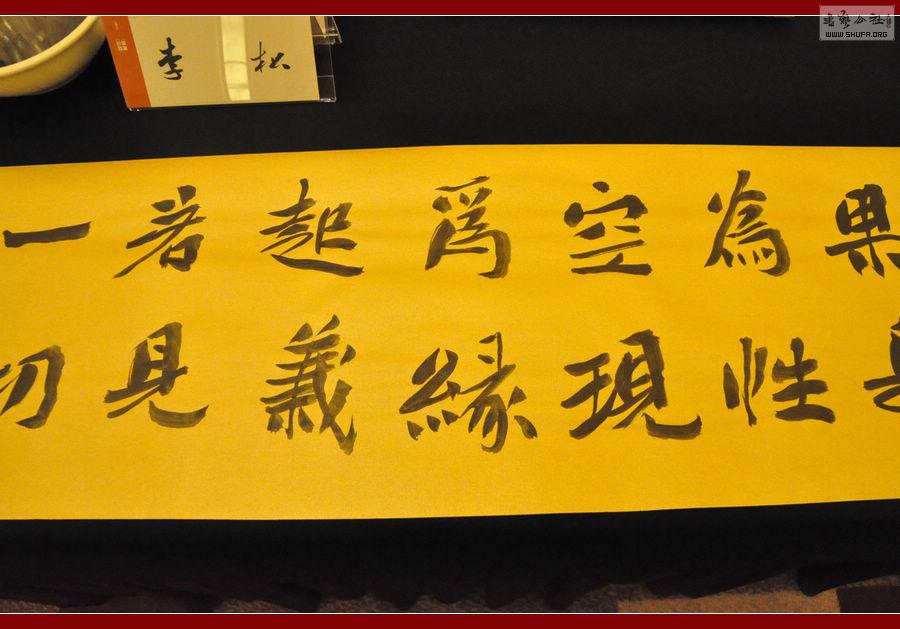 果
為性
空現
爲緣
起義
著見
一切
李松
書藝公社
WWW.SHUFA.ORG